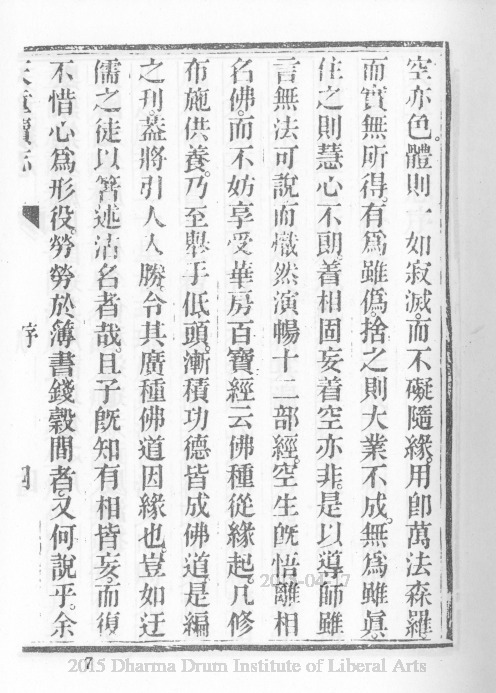 空亦色。體則一如寂滅。而不礙隨緣。用卽萬法森羅
而實無所得。有爲雖僞。捨之則大業不成。無爲雖眞。
住之則慧心不朗。着相固妄。着空亦非。是以導師雖
言無法可說。而熾然演暢十二部經。空生旣悟離相
名佛。而不妨享受華房百寶。經云佛種從緣起。凡修
布施供養。乃至舉手低頭。漸積功德。皆成佛道。是編
之刊。葢將引人入勝。令其廣種佛道因緣也。豈如迂
儒之徒以箸述沽名者哉。且子旣知有相皆妄。而復
不惜心爲形役。勞勞於簿書錢穀間者。又何說乎。余
序 四
7
2015 Dharma Drum Institute of Liberal Arts